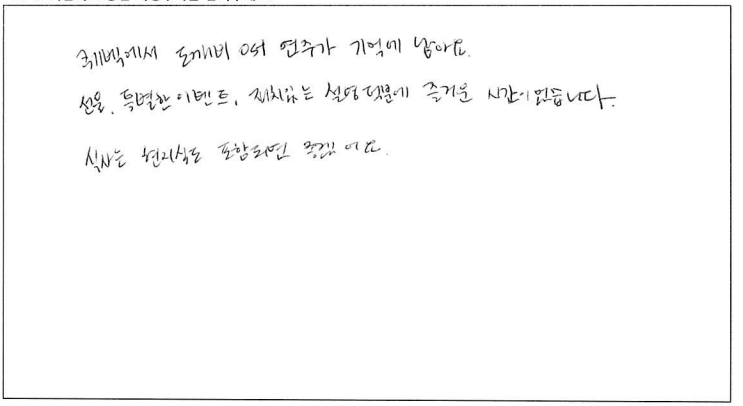 퀘벡에서 도깨비 OST 연주가 기억에 남아요.
선물, 특별한 이벤트, 재치있는 설명 덕분에 즐거운 시간이었습니다.
식사는 현지식도 포함되면 좋겠어요.